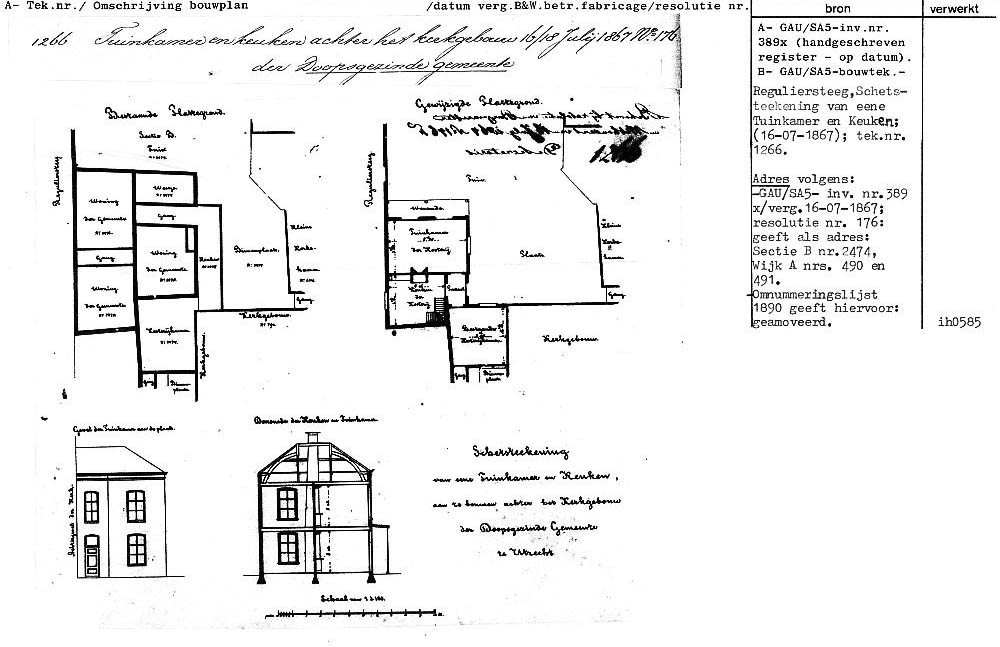 A- Tek.nr./ Omschrijving bouwplan /datum verg.B&W.betr.fabricage/resolutie nr.
bron
verwerkt
1266 Tuinkamer en keuken achter het kerkgebouw 16/18 Julij 1867 No 176
der Doopsgezinde gemeente
A- GAU/SA5-inv.nr.
389x (handgeschreven
register - op datum).
B- GAU/SA5-bouwtek.-
Reguliersteeg,Schets-
teekening van eene
Tuinkamer en Keuken;
(16-07-1867); tek.nr.
1266.
Adres volgens:
-GAU/SA5- inv. nr.389
x/verg.16-07-1867;
resolutie nr. 176:
geeft als adres:
Sectie B nr.2474,
Wijk A nrs. 490 en
491.
-Omnummeringslijst
1890 geeft hiervoor:
geamoveerd.
ih0585
Bestaande Plattegrond.
Sectie B.
Tuin
Regulierssteeg
Woning
der Gemeente
Gang
Woning
der Gemeente
Gang
Woning
der Gemeente
Keuken
Binnenplaats
Kleine
Kerks-
kamer
Gang
Kosterijkamer
Kerkgebouw
Kerkgebouw
Gang
Binnen
plaats
Gewijzigde Plattegrond.
1266
Regulierssteeg
Tuin
Veranda
Tuinkamer
der Kosterij
Keuken
der
Kosterij
Plaats
Kleine
Kerks
kamer
Gang
Bestaande
Kosterijkamer
Kerkgebouw
Gang
Binnen
plaats
Gevel der Tuinkamer aan de plaats.
Doorsnede der Keuken en Tuinkamer
Schetsteekening
van eene Tuinkamer en Keuken,
aan te bouwen achter het Kerkgebouw
der Doopsgezinde Gemeente
te Utrecht
Schaal van 1 à 100.